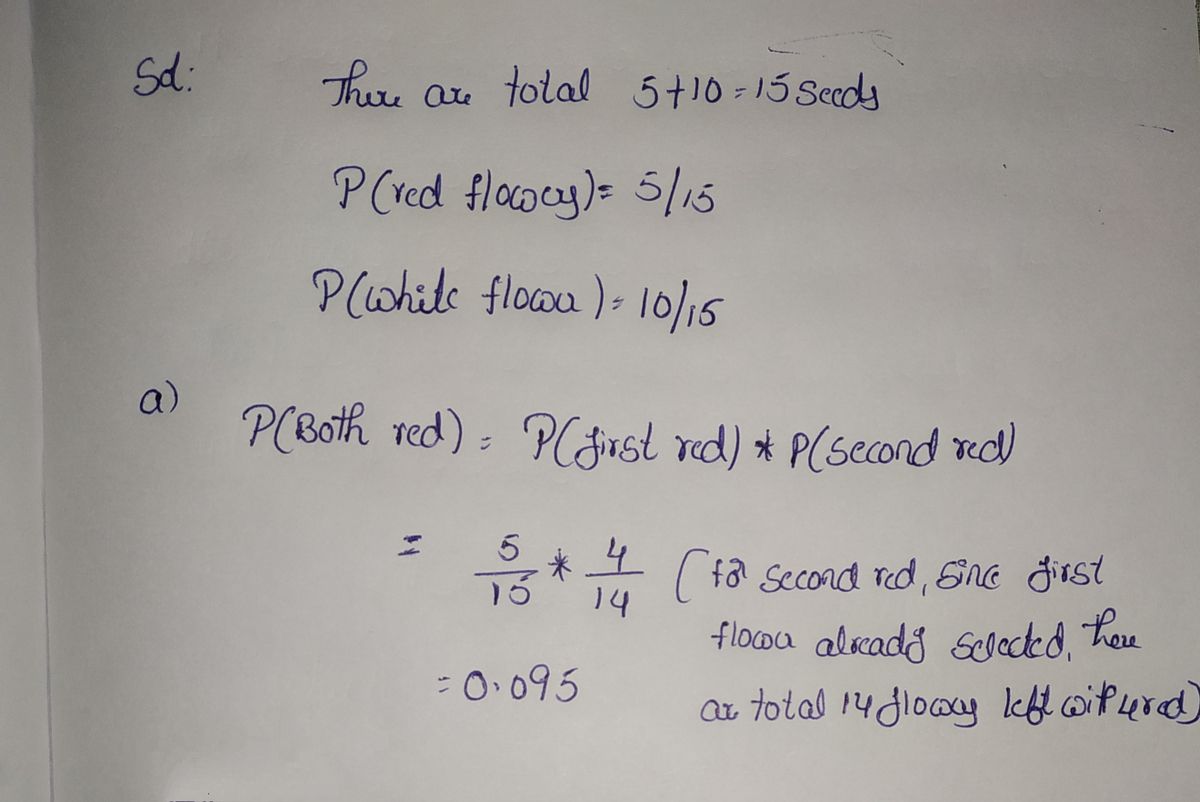 Sol:
There are total 5+10=15 Seeds
P(red flowers)= 5/15
P(white flower)= 10/15
a)
P(Both red) = P(first red) * P(second red)
= 5/15 * 4/14 (for second red, since first
flower already selected, there
= 0.095
are total 14 flowers left with 4 red)